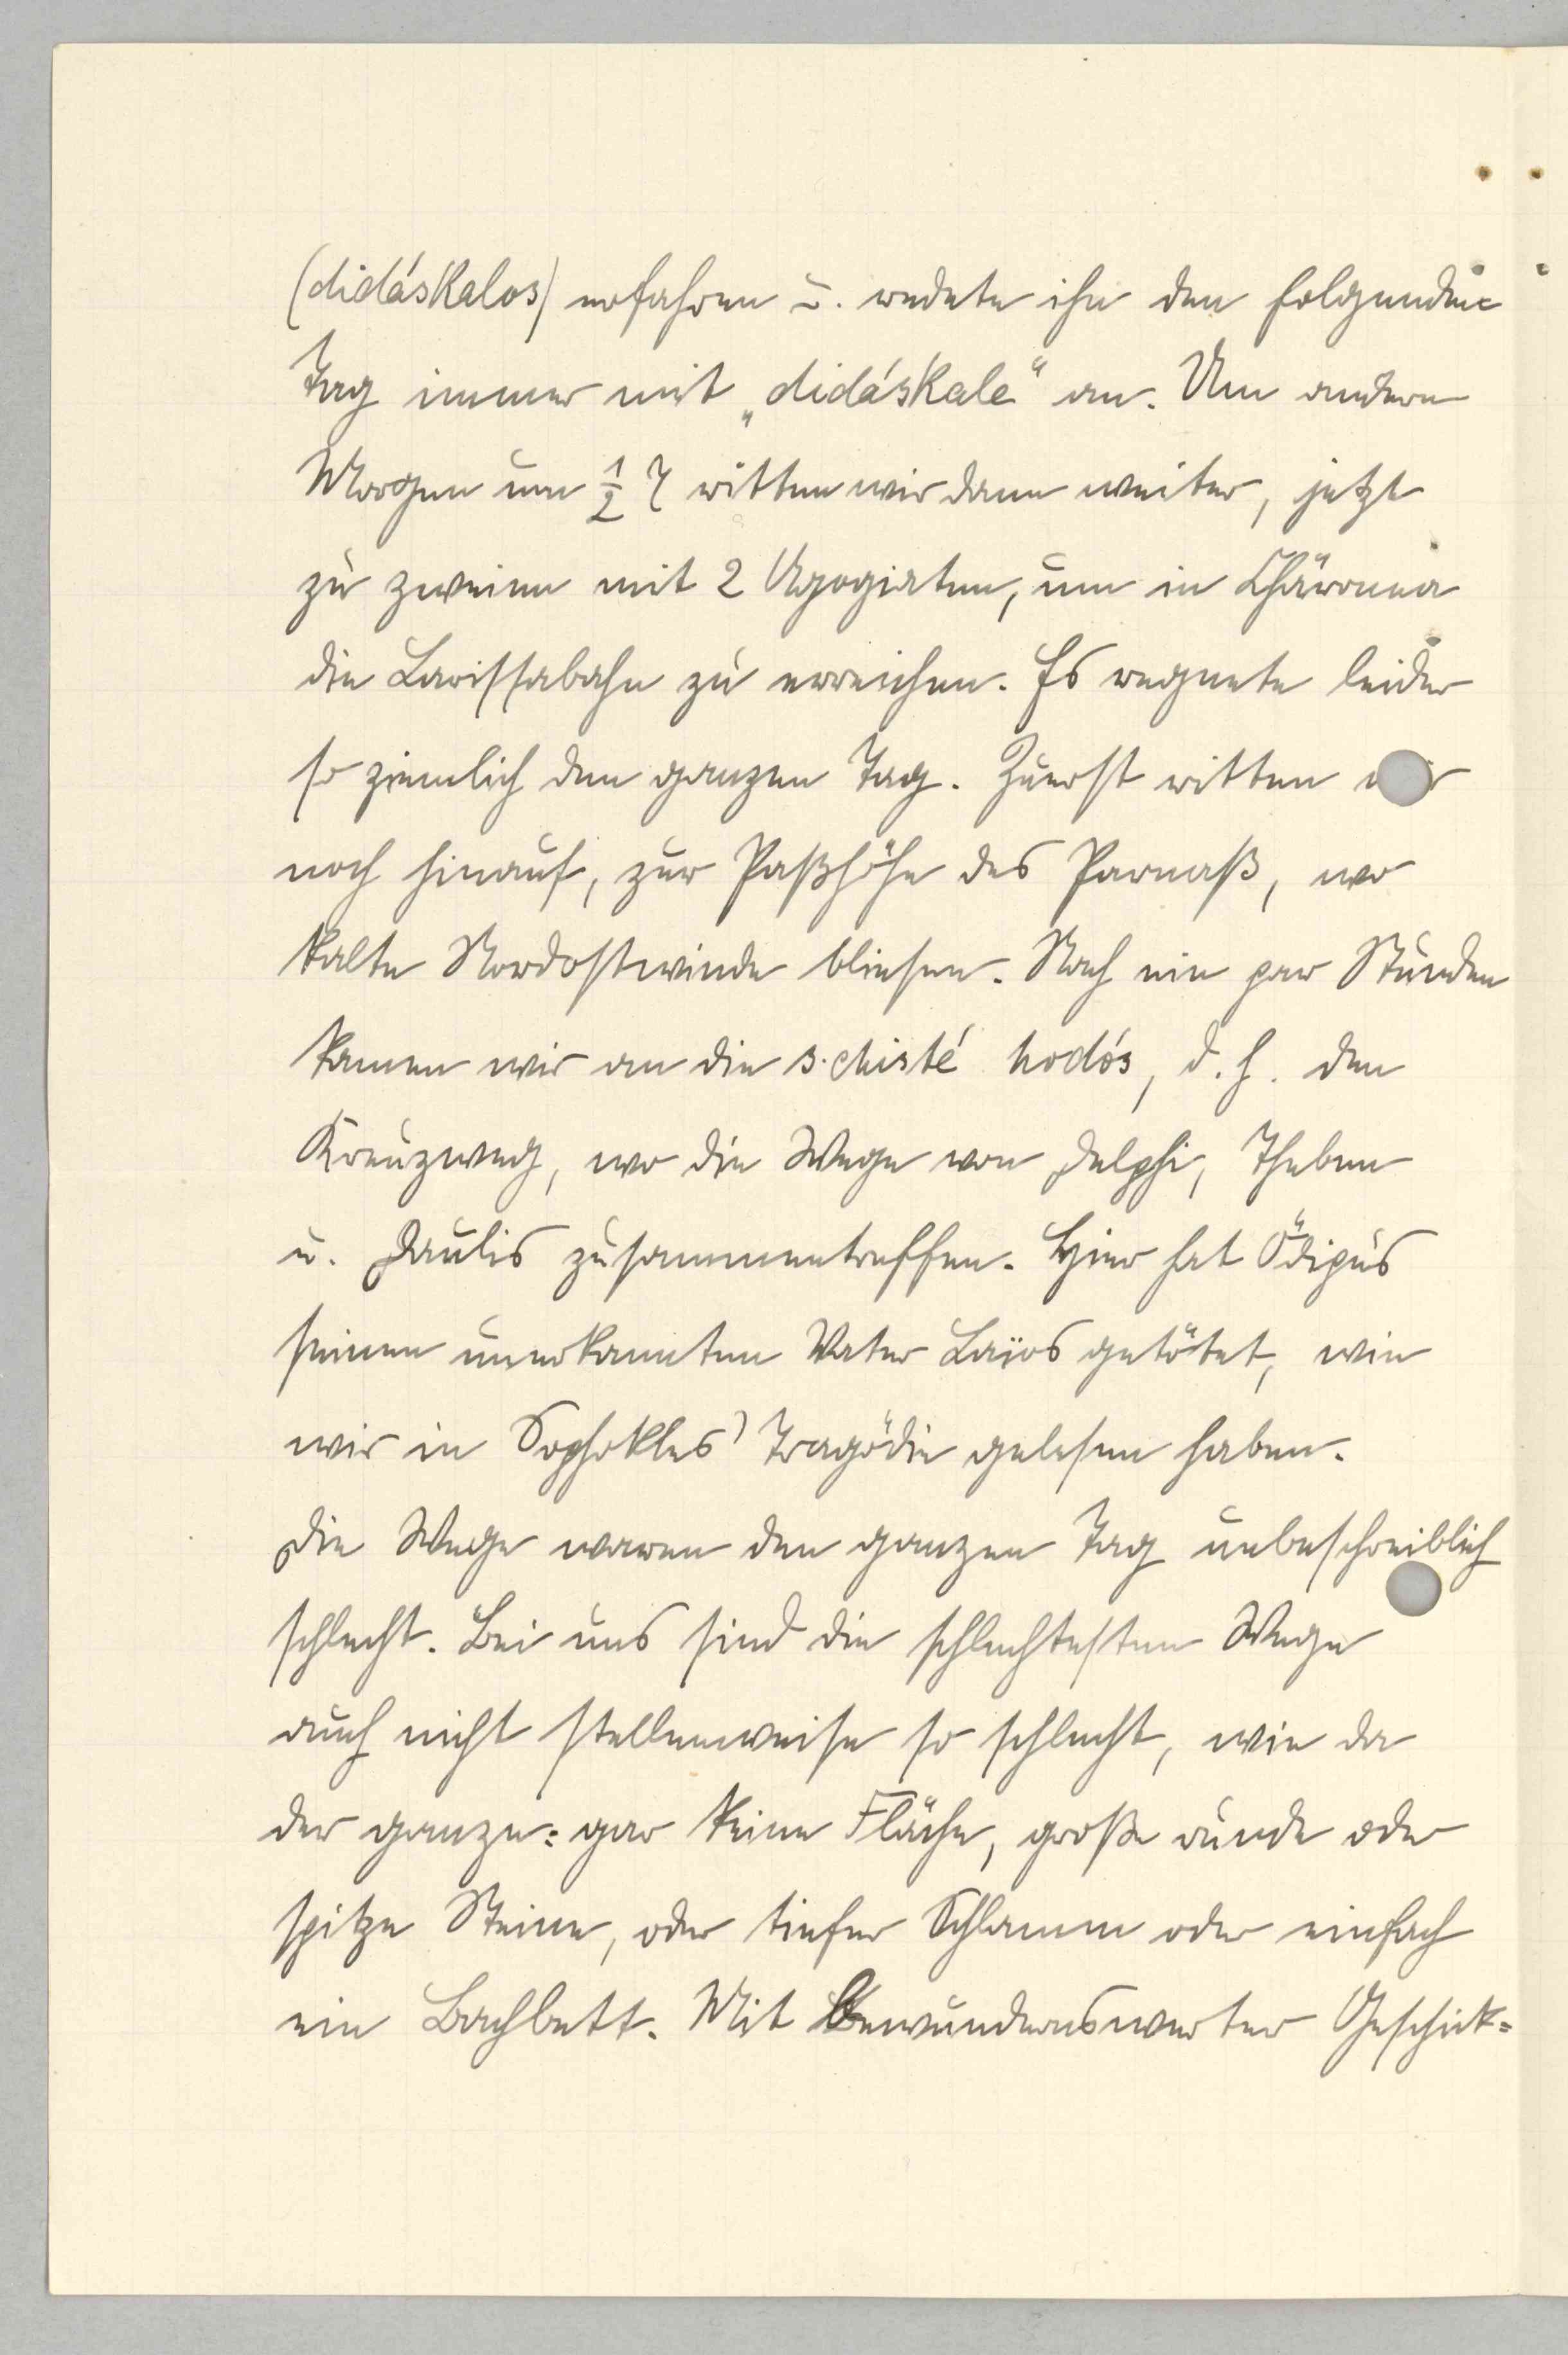 (didáskalos) erfahren u. redete ihn den folgenden
Tag immer mit „didáskale“ an. Um andern
Morgen um ½ 7 ritten wir dann weiter, jetzt
zu zweien mit 2 Agogiaten, um in Chäronea
die Larissabahn zu erreichen. Es regnete leider
so ziemlich den ganzen Tag. Zuerst ritten wir
noch hinauf, zur Paßhöhe des Parnaß, wo
kalte Nordostwinde bliesen. Nach ein par Stunden
kamen wir an die s.chisté hodós, d. h. den
Kreuzweg, wo die Wege von Delphi, Theben
u. Daulis zusammentreffen. Hier hat Ödipus
seinen unerkannten Vater Laïos getötet, wie
wir in Sophokles' Tragödie gelesen haben.
Die Wege waren den ganzen Tag unbeschreiblich
schlecht. Bei uns sind die schlechtesten Wege
auch nicht stellenweise so schlecht, wie da
der ganze: gar keine Fläche, große runde oder
spitze Steine, oder tiefer Schlamm oder einfach
ein Bachbett. Mit bewundernswerter Geschick=